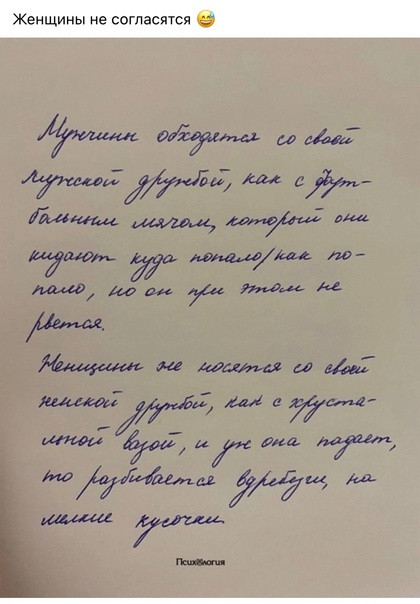 Женщины не согласятся 😅
Мужчины обходятся со своей
мужской дружбой, как с фут-
больным мячом, который они
кидают куда попало/как по-
пало, но он при этом не
рвется.
Женщины же носятся со своей
женской дружбой, как с хруста-
льной вазой, и уж она падает,
то разбивается вдребезги, на
мелкие кусочки.
Психология